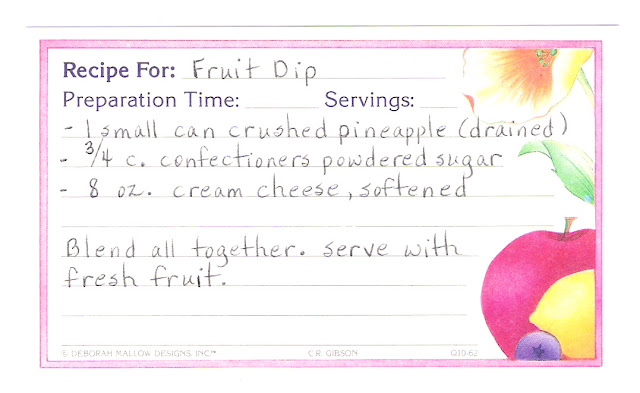 Recipe For: Fruit Dip
Preparation Time: Servings:
- 1 small can crushed pineapple (drained)
- 3/4 c. confectioners powdered sugar
- 8 oz. cream cheese, softened
Blend all together. serve with
fresh fruit.
© DEBORAH MALLOW DESIGNS, INC.™ C.R. GIBSON Q10-62